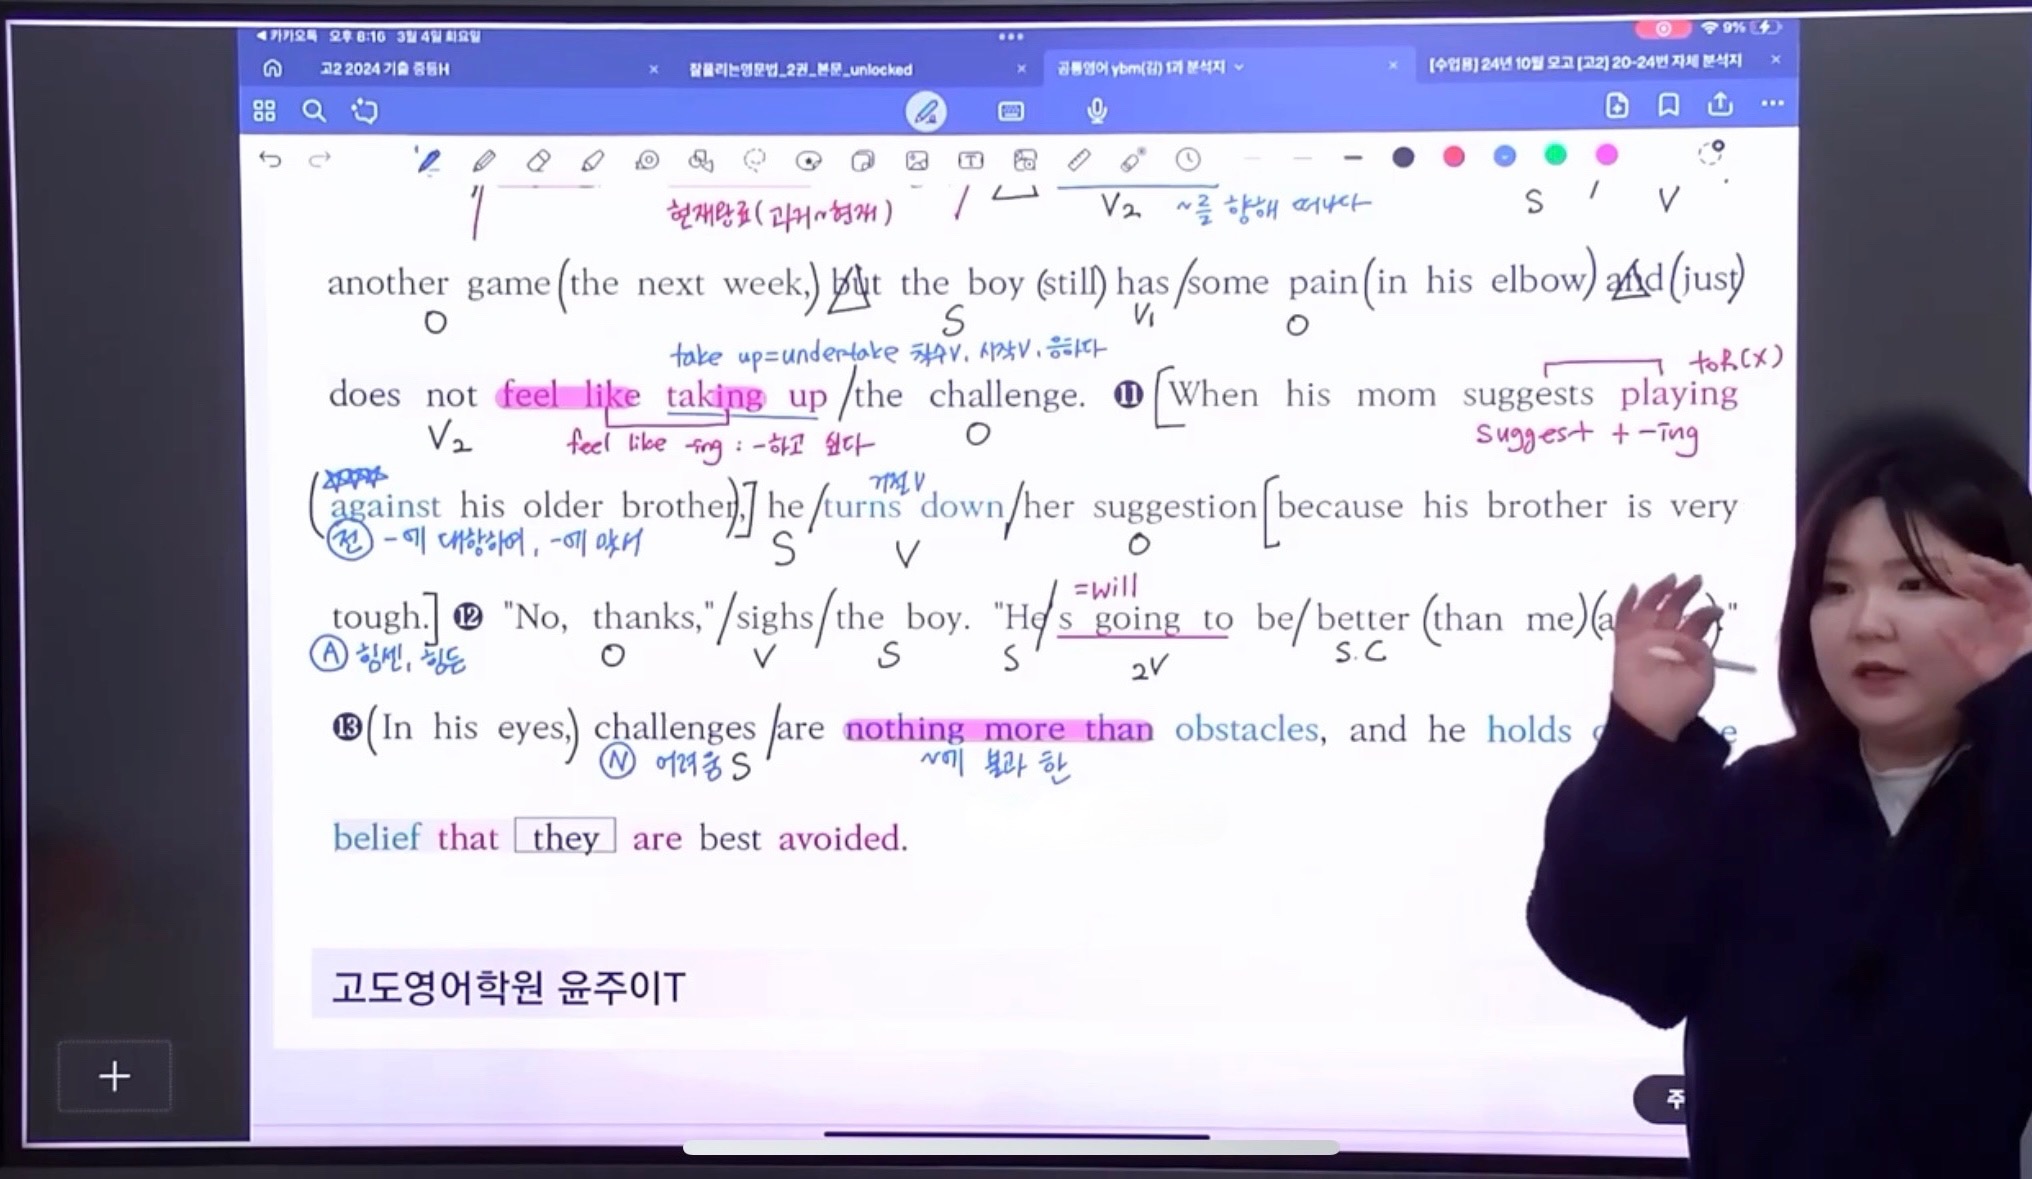 카카오톡 오후 8:16 3월 4일 화요일
9%
고2 2024 기출 중등H
잘풀리는영문법_2권_본문_unlocked
공통영어 ybm(김) 1과 분석지
[수업용] 24년 10월 모고 [고2] 20-24번 자체 분석지
현재완료(과거~현재)
V2 ~를 향해 떠나다
S V
another game (the next week,) but the boy (still) has /some pain (in his elbow) and (just)
O S V1 O
take up=undertake 착수V, 시작V, 응하다
to R (X)
does not feel like taking up /the challenge. ⓫ [When his mom suggests playing
V2 feel like -ing : -하고 싶다 O suggest + -ing
거절V
(against his older brother),] he /turns down /her suggestion [because his brother is very
전 -에 대항하여, -에 맞서 S V O
=will
tough.] ⓬ "No, thanks," /sighs /the boy. "He/'s going to be/ better (than me)
A 힘센, 힘든 O V S S 2V S.C
⓭ (In his eyes,) challenges /are nothing more than obstacles, and he holds
N 어려움 S ~에 불과 한
belief that they are best avoided.
고도영어학원 윤주이T
주